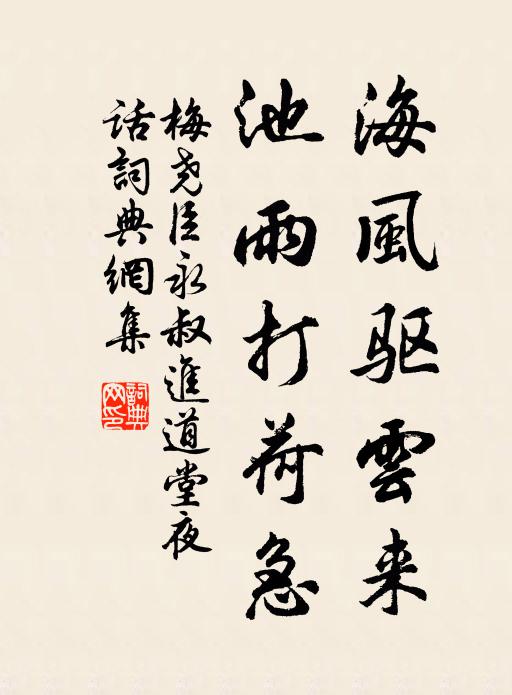 海風驱雲来
池雨打荷急
梅尧臣永叔進道堂夜
話詞典網集
詞典網印